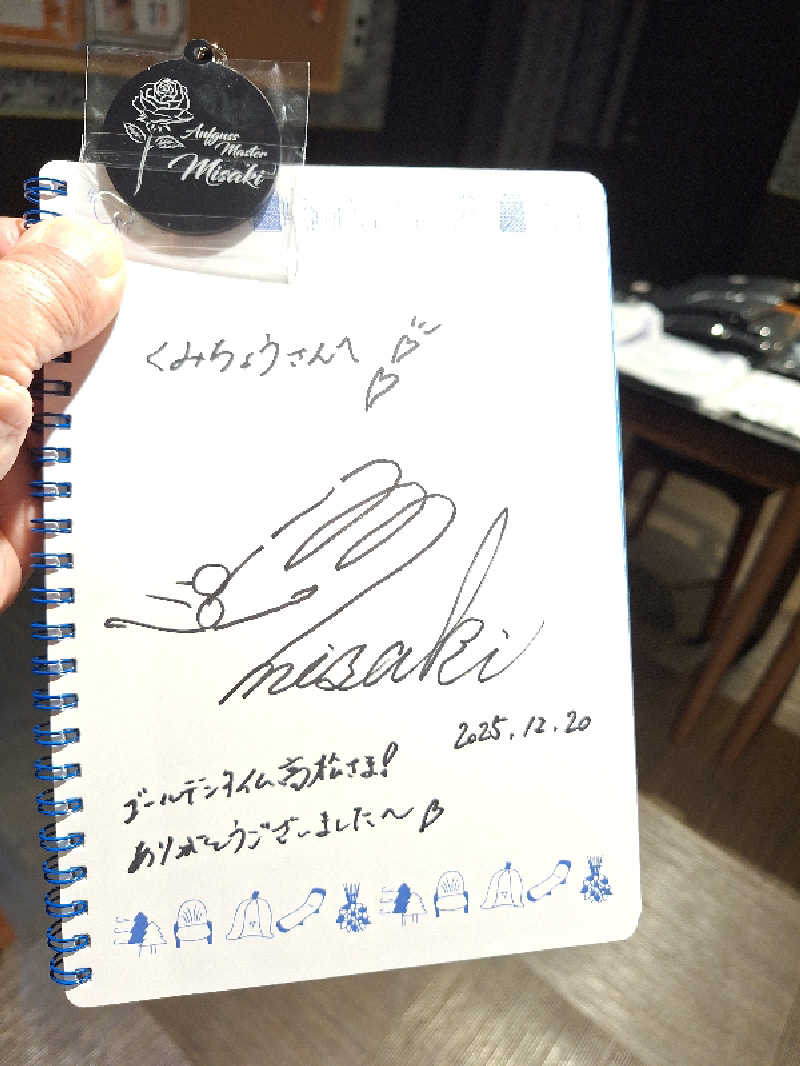 Aufguss
Master
Misaki
くみちょうさんへ
misaki
2025.12.20
ゴールデンタイム高松さま!
ありがとうございました〜